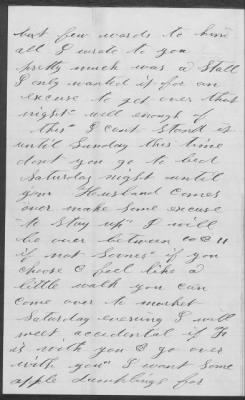 but few words to him
all I wrote to you
pretty much was a stall
I only wanted it for an
excuse to get over that
night" well enough of
this" I cant stand it
until Sunday this time
dont you go to bed
Saturday night until
your Husband comes
over make some excuse
"to stay up" I will
be over between 10 & 11
if not sooner" if you
choose & feel like a
little walk you can
come over to market
Saturday evening I will
meet accidental if
is with you & go over
with you" I want some
apple dumplings for